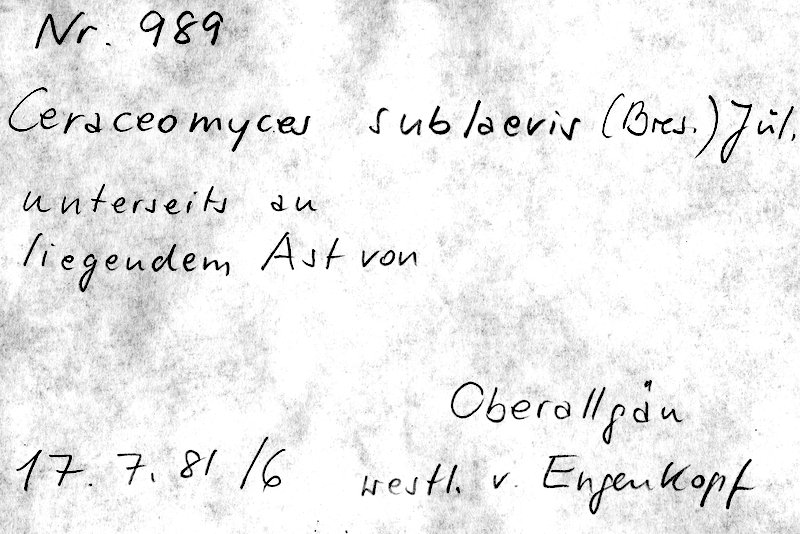 Nr. 989
Ceraceomyces sublaevis (Bres.) Jül.
unterseits an
liegendem Ast von
Oberallgäu
17. 7. 81 /6 westl. v. Engenkopf